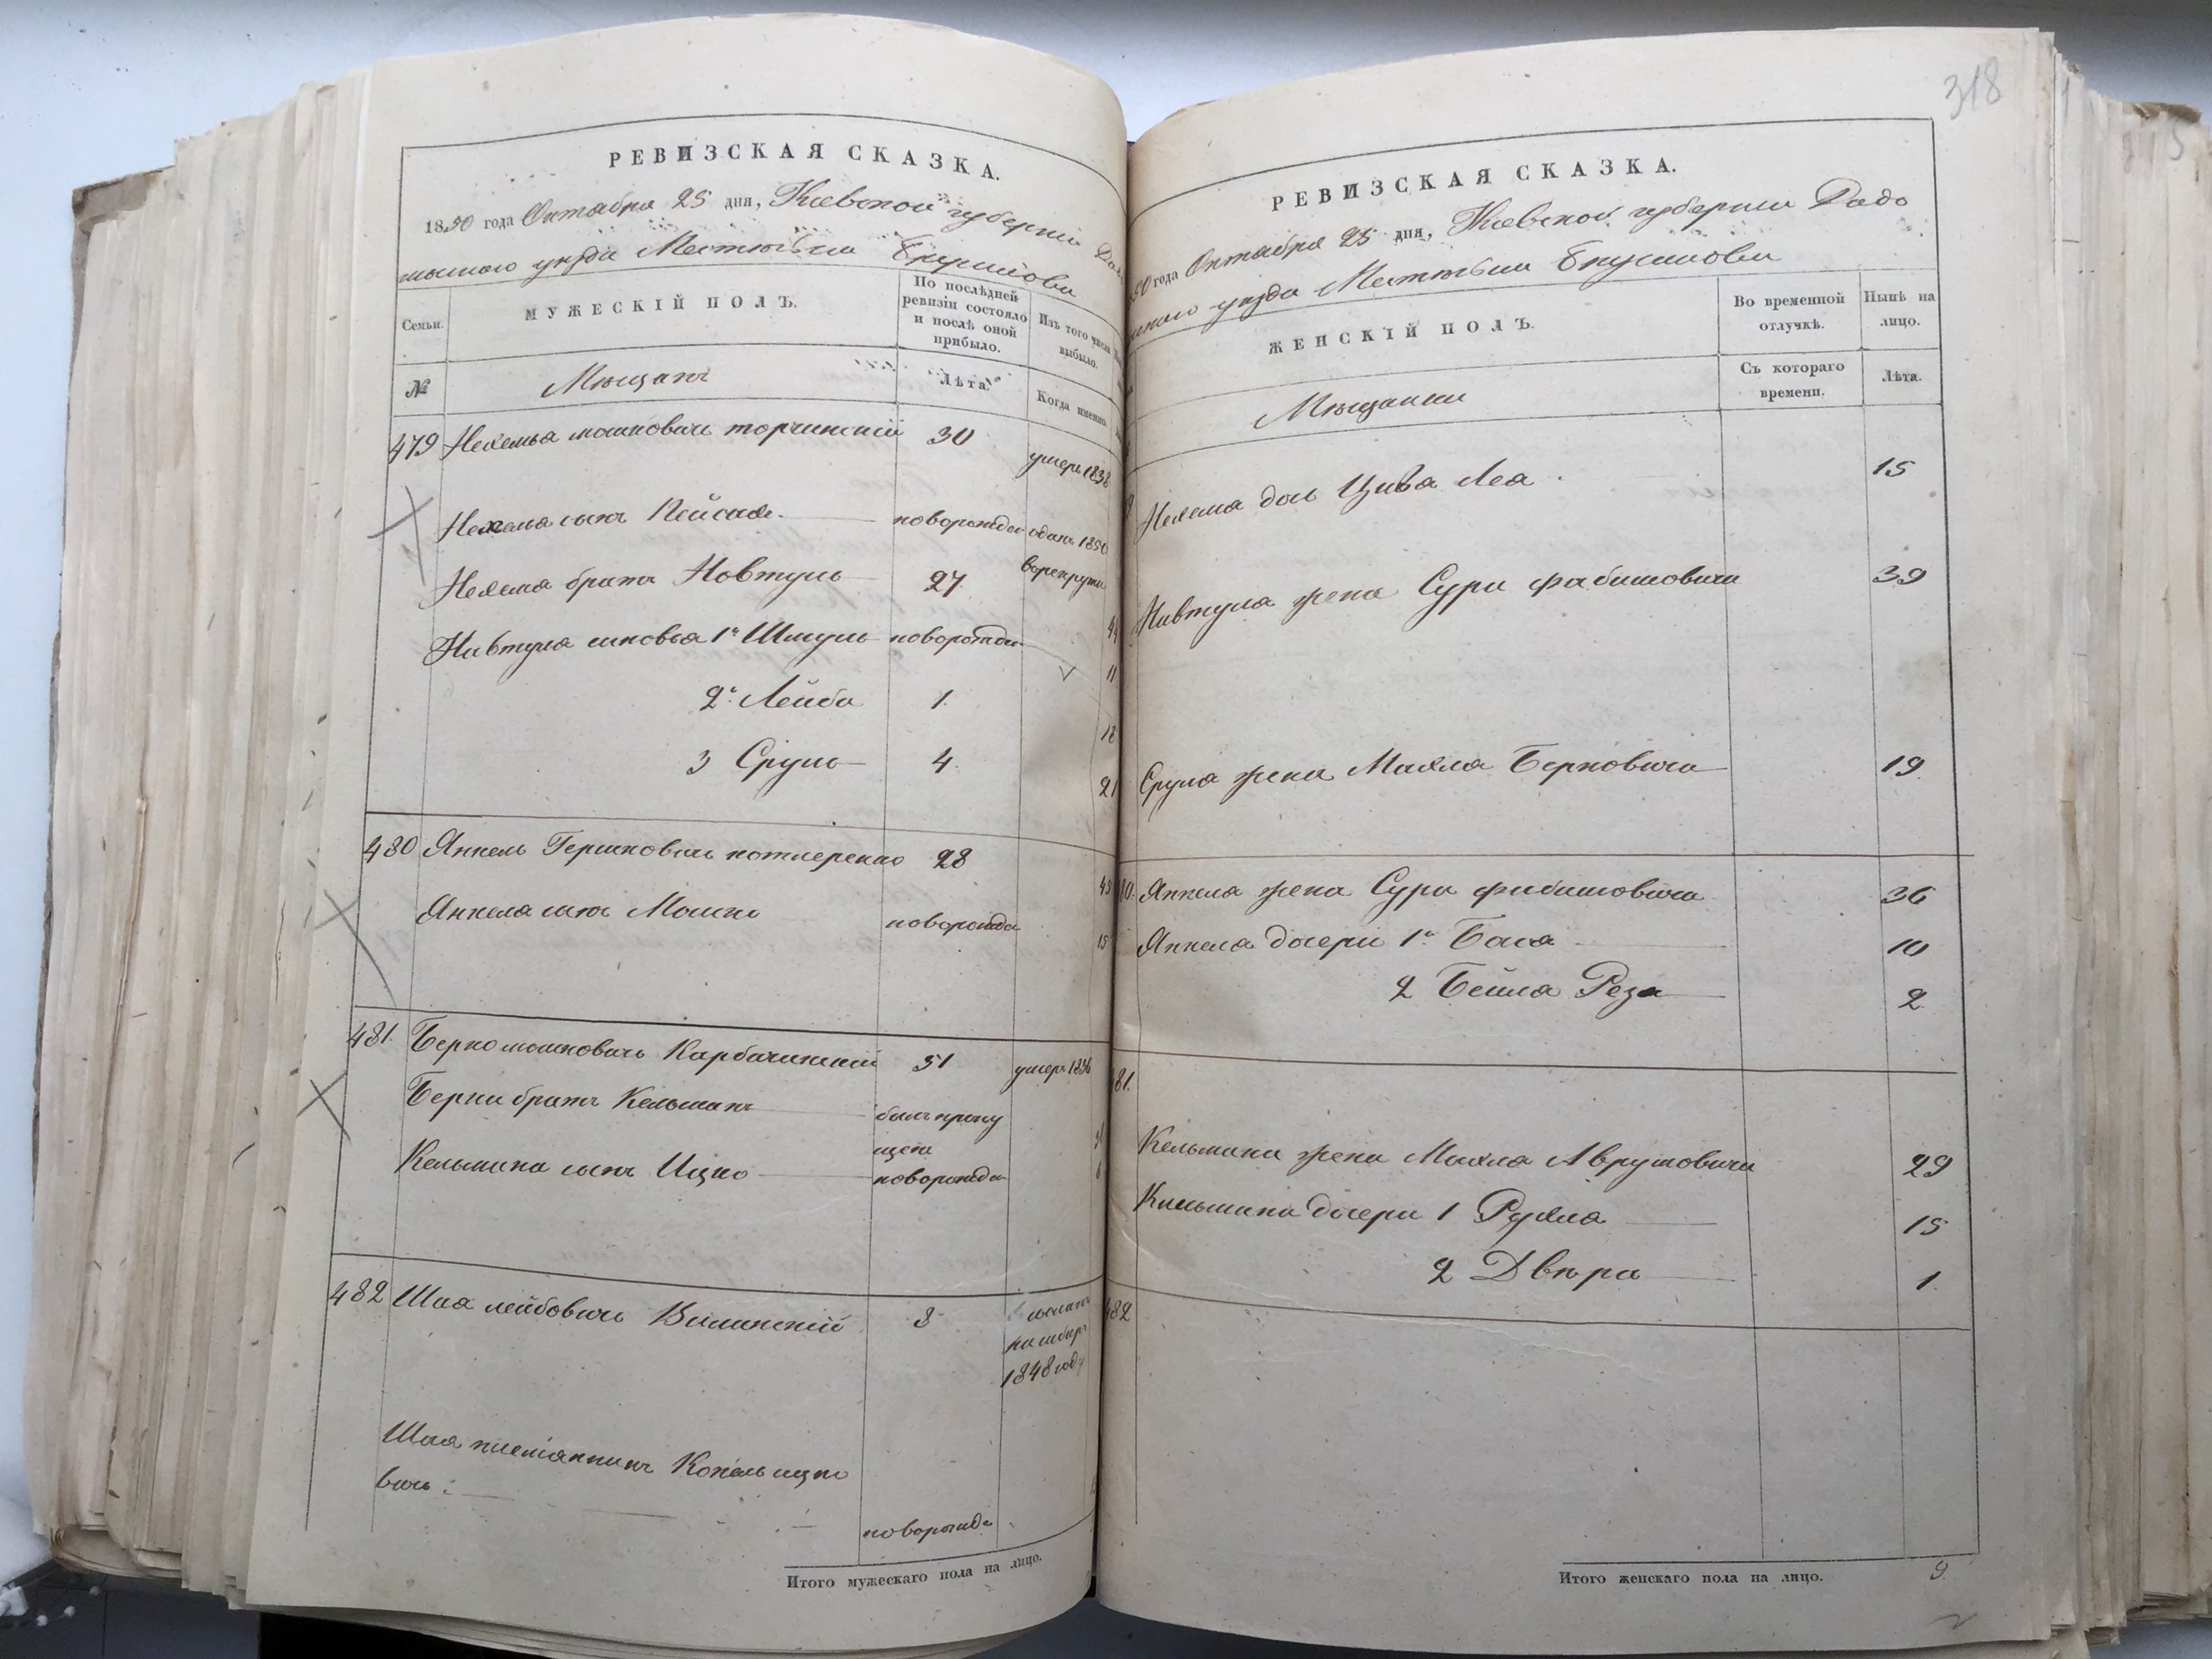 318
РЕВИЗСКАЯ СКАЗКА.
1850 года Октября 25 дня, Киевской губерніи
мысльского уѣзда Местечка Брусилова
Семьи.
МУЖЕСКІЙ ПОЛЪ.
По послѣдней ревизіи состояло и послѣ оной прибыло.
Изъ того числа выбыло.
№
Мещанъ
Лѣта.
Когда именно
479 Нехемья мошковичь торчинскій 30 умеръ 1838
Нехемья сынъ Пейсах новорожде отданъ 1850
в рекруты
Нехема братъ Новтуль 27
44
Нивтула сыновья 1й Шмуль новорожден
11
2й Лейба 1
12
3 Сруль 4
21
480 Янкель Гершковичь котлеренко 28
45
Янкеля сынъ Мошко новорожде
15
481. Берко мошковичь Карбачинскій 51 умеръ 1836
Берки братъ Кельманъ былъ пропу
щенъ
Кельмана сынъ Ицко новорожде
6
482 Шая лейбовичь Вилинскій 8 сосланъ
1848 году
Шая племянникъ Копель ицко
вичь новорожде
Итого мужескаго пола на лицо.
РЕВИЗСКАЯ СКАЗКА.
50 года Октября 25 дня, Киевской губерніи Радо
уѣзда Местечка Брусилова
ЖЕНСКІЙ ПОЛЪ.
Во временной отлучкѣ.
Нынѣ на лицо.
Мещанки
Съ котораго времени.
Лѣта.
Нехема дочь Цива Леа 15
Нивтула жена Сура фабишовича 39
Срула жена Махла Берковича 19
80. Янкеля жена Сура фабишовича 36
Янкеля дочери 1я Бася 10
2 Бейла Реза 2
81.
Кельмана жена Махла Аврумовича 29
Кельмана дочери 1 Рухля 15
2 Двѣра 1
482
Итого женскаго пола на лицо. 9